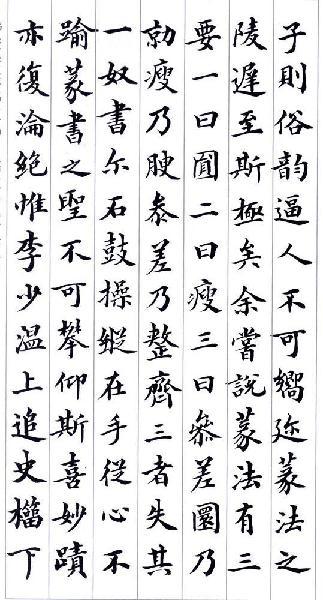 子則俗韵逼人不可嚮迩篆法之
陵遲至斯極矣余嘗說篆法有三
要一曰圓二曰瘦三曰參差圓乃
勁瘦乃腴參差乃整齊三者失其
一奴書尔石鼓操縱在手從心不
踰篆書之聖不可攀仰斯喜妙蹟
亦復淪絕惟李少溫上追史籀下